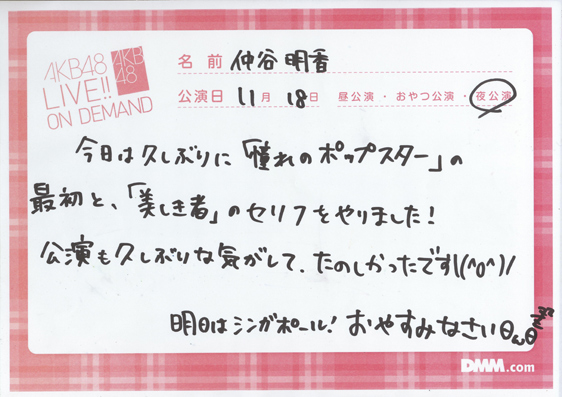 AKB48
LIVE!!
ON DEMAND
AKB
48
名前 仲谷明香
公演日 11月 18日 昼公演・おやつ公演・夜公演
今日は久しぶりに「憧れのポップスター」の
最初と、「美しき者」のセリフをやりました!
公演も久しぶりな気がして、たのしかったです\(^o^)/
明日はシンガポール! おやすみなさいθωθ
DMM.com